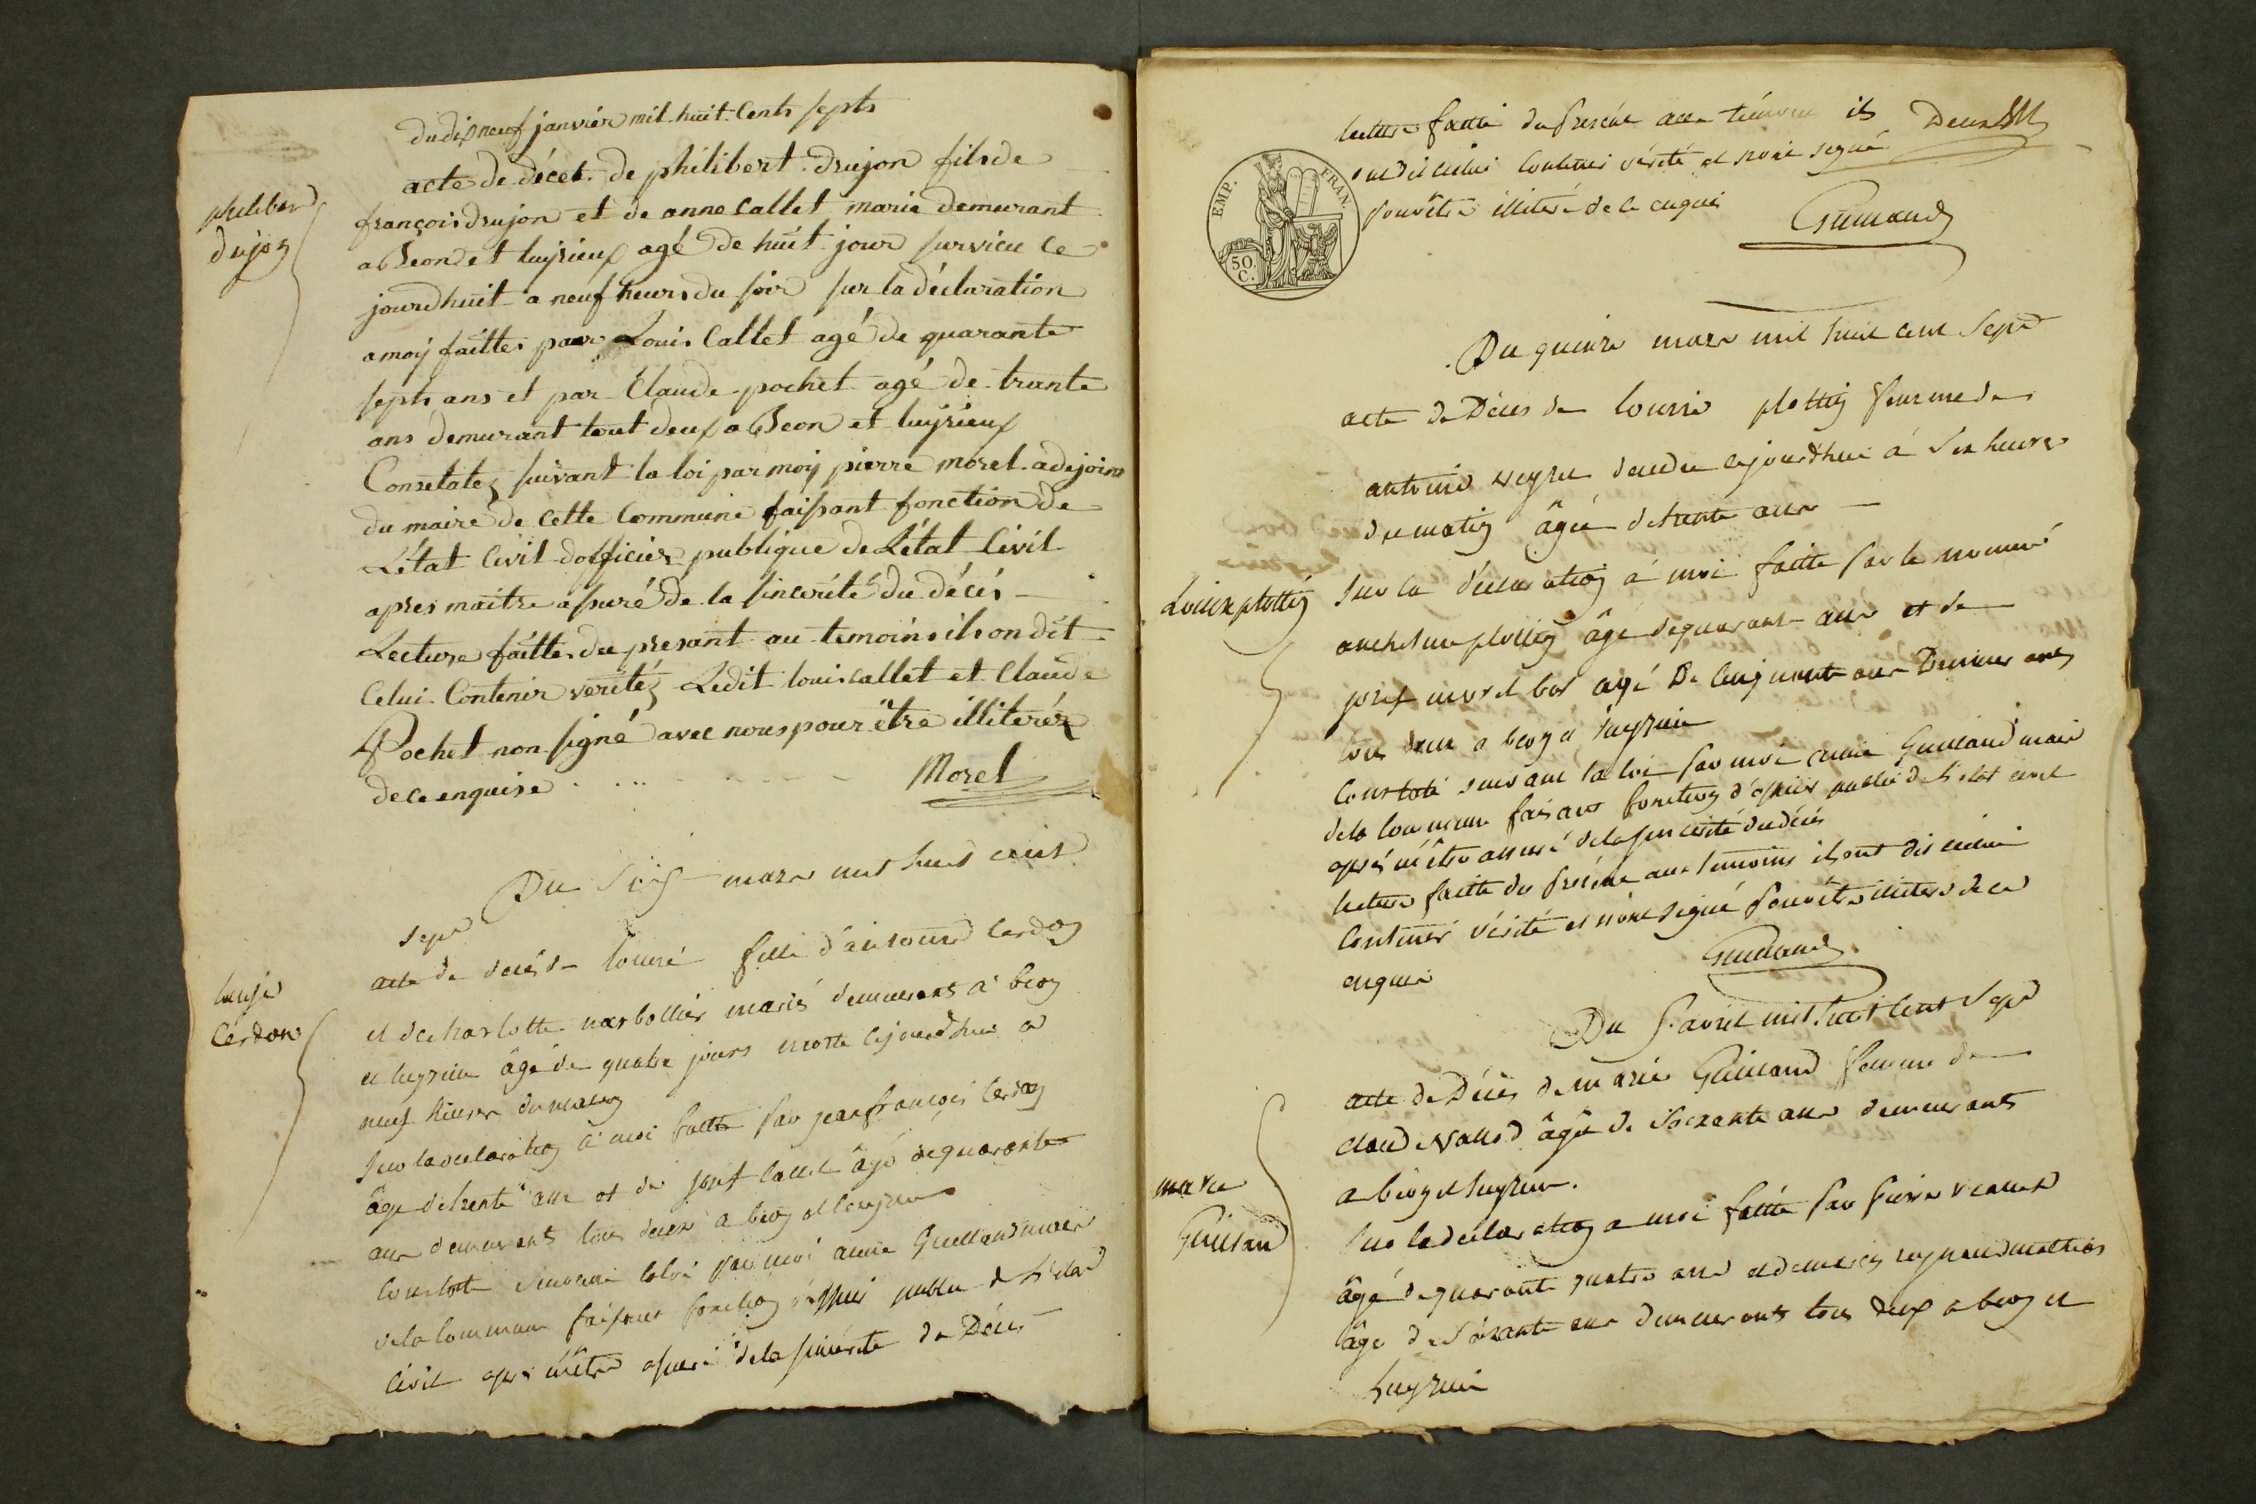 du dix neuf janvier mil huit Cents septs
acte de décet de philibert drujon fils de
philiberd
drujon
françois drujon et de anne Callet marié demeurant
a Beon et luyrieux agé de huit jour survieu ce
jourdhuit a neuf heurs du soir sur la déclaration
a moy faittes par Louis Callet agé de quarante
septs ans et par Claude pochet agé de trante
ans demurant tout deux a Beon et luyrieux
Constatez suivant la loi par moy pierre morel adejoins
du maire de cette Commune faisant fonction de
L'état Civil dofficier publique de L'état Civil
apres maitre assuré de la sincérité du décés
Lecture faitte du presant au temoins ils on dit
Celui Contenir veritéz Ledit louis callet et Claude
Pochet non signé avec nous pour être illiteréz
de ce enquise
Morel
Du Six mars mil huit cent
sept
acte de décès de louise fille d'antoine Cerdon
louise
Cerdon
et de charlotte marbollier mariés demeurants à beon
et luyrieu âgé de quatre jours morte cejourdhui a
neuf heures du matin
Sur la declaration à moi faitte par jean françois Cerdon
âgé de trente ans et de josef Callet âgé de quarante
ans demeurants tous deux a beon et luyrieu
Constaté suivant la loi par moi Guilland maire
de la Commune faisant fonction d'officier public de l'état
Civil après m'être assuré de la sincérité du Décès
EMP. FRAN.
50 C.
lecture faitte du présent aux témoins ils
ont dit celui contenir vérité et n'ont signé
pour être illiteré de ce enquis
Guilland
Du quinze mars mil huit cent Sept
acte de Décès de louise plottin femme de
antoine veyret décédée cejourd'hui à Six heures
du matin âgée de trente ans
Louise plottin
Sur la déclaration à moi faitte par le nommé
anthelme plottin âgé de quarante ans et de
josef morel bos agé De Cinquante ans Demeurants
tous deux a beon et luyrieu
Constaté suivant la loi par moi Guilland maire
de la Commune faisant fonction d'officier public de l'état civil
après m'être assuré de la sincérité du décès
lecture faitte du présent aux témoins ils ont dit celui
Contenir vérité et n'ont signé pour être illiteré de ce
enquis
Guilland
Du avril mil huit Cent Sept
acte de Décès de marie Guilland femme de
Claude âgée de Soixante ans demeurants
a beon et luyrieu.
marie
Guilland
Sur la déclaration a moi faitte par pierre
âgé de quarante quatre ans et de
âgé de Soixante ans demeurants tous deux a beon et
luyrieu